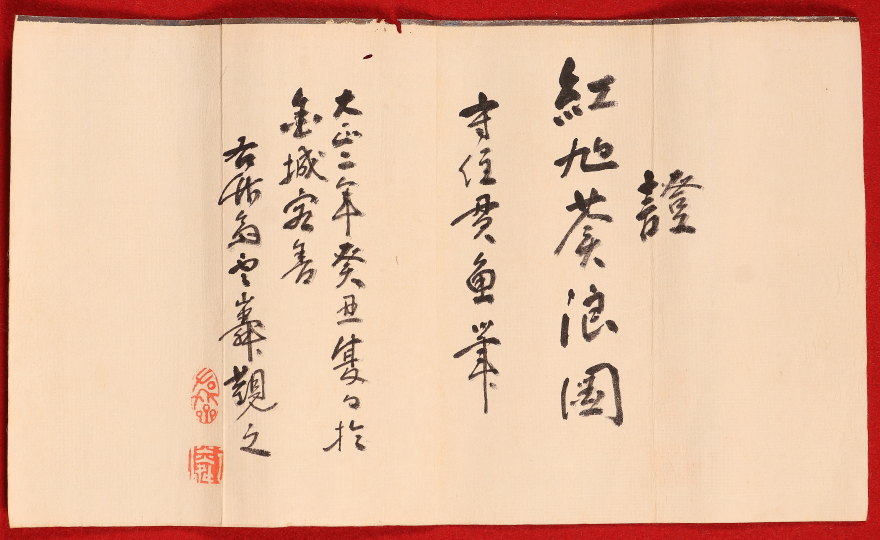 證
紅旭蒼浪圖
守住貫魚筆
大正二年癸丑夏日於
金城客舍
石竹翁雲峯觀之